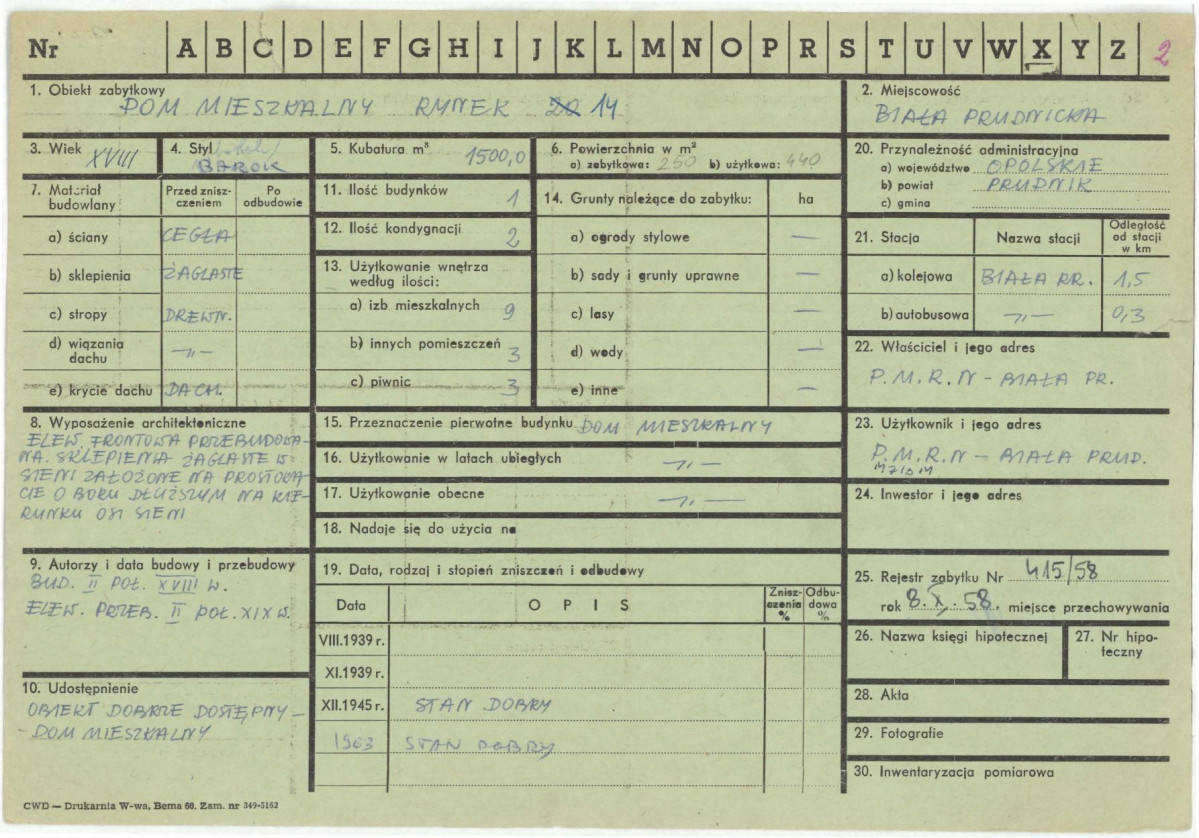 Nr A B C D E F G H I J K L M N O P R S T U V W X Y Z 2
1. Obiekt zabytkowy
DOM MIESZKALNY RYNEK 14
2. Miejscowość
BIAŁA PRUDNICKA
3. Wiek XVIII
4. Styl
BAROK
5. Kubatura m³ 1500,0
6. Powierzchnia w m²
a) zabytkowa: 250 b) użytkowa: 440
20. Przynależność administracyjna
a) województwo OPOLSKIE
b) powiat PRUDNIK
c) gmina
7. Materiał budowlany
Przed zniszczeniem
Po odbudowie
a) ściany CEGŁA
b) sklepienia ŻAGLASTE
c) stropy DREWN.
d) wiązania dachu —„—
e) krycie dachu DACH.
11. Ilość budynków 1
12. Ilość kondygnacji 2
13. Użytkowanie wnętrza
według ilości:
a) izb mieszkalnych 9
b) innych pomieszczeń 3
c) piwnic 3
14. Grunty należące do zabytku: ha
a) ogrody stylowe —
b) sady i grunty uprawne —
c) lasy —
d) wody —
e) inne —
21. Stacja
Nazwa stacji
Odległość
od stacji
w km
a) kolejowa BIAŁA PR. 1,5
b) autobusowa —„— 0,3
22. Właściciel i jego adres
P.M.R.N – BIAŁA PR.
8. Wyposażenie architektoniczne
ELEW. FRONTOWA PRZEBUDOWA-
NA. SKLEPIENIA ŻAGLASTE W
SIENI ZAŁOŻONE NA PROSTOKĄ
CIE O BOKU DŁUŻSZYM NA KIE-
RUNKU OSI SIENI
15. Przeznaczenie pierwotne budynku DOM MIESZKALNY
16. Użytkowanie w latach ubiegłych —„—
17. Użytkowanie obecne —„—
18. Nadaje się do użycia na
23. Użytkownik i jego adres
P.M.R.N – BIAŁA PRUD.
24. Inwestor i jego adres
9. Autorzy i data budowy i przebudowy
BUD. II POŁ. XVIII W.
ELEW. PRZEB. II POŁ. XIX W.
10. Udostępnienie
OBIEKT DOBRZE DOSTĘPNY –
– DOM MIESZKALNY
19. Data, rodzaj i stopień zniszczeń i odbudowy
Data
OPIS
Zniszczenia %
Odbudowa %
VIII.1939 r.
XI.1939 r.
XII.1945 r. STAN DOBRY
1963 STAN DOBRY
25. Rejestr zabytku Nr 415/58
rok 8.X.58. miejsce przechowywania
26. Nazwa księgi hipotecznej
27. Nr hipoteczny
28. Akta
29. Fotografie
30. Inwentaryzacja pomiarowa
CWD — Drukarnia W-wa, Bema 60. Zam. nr 349-5162